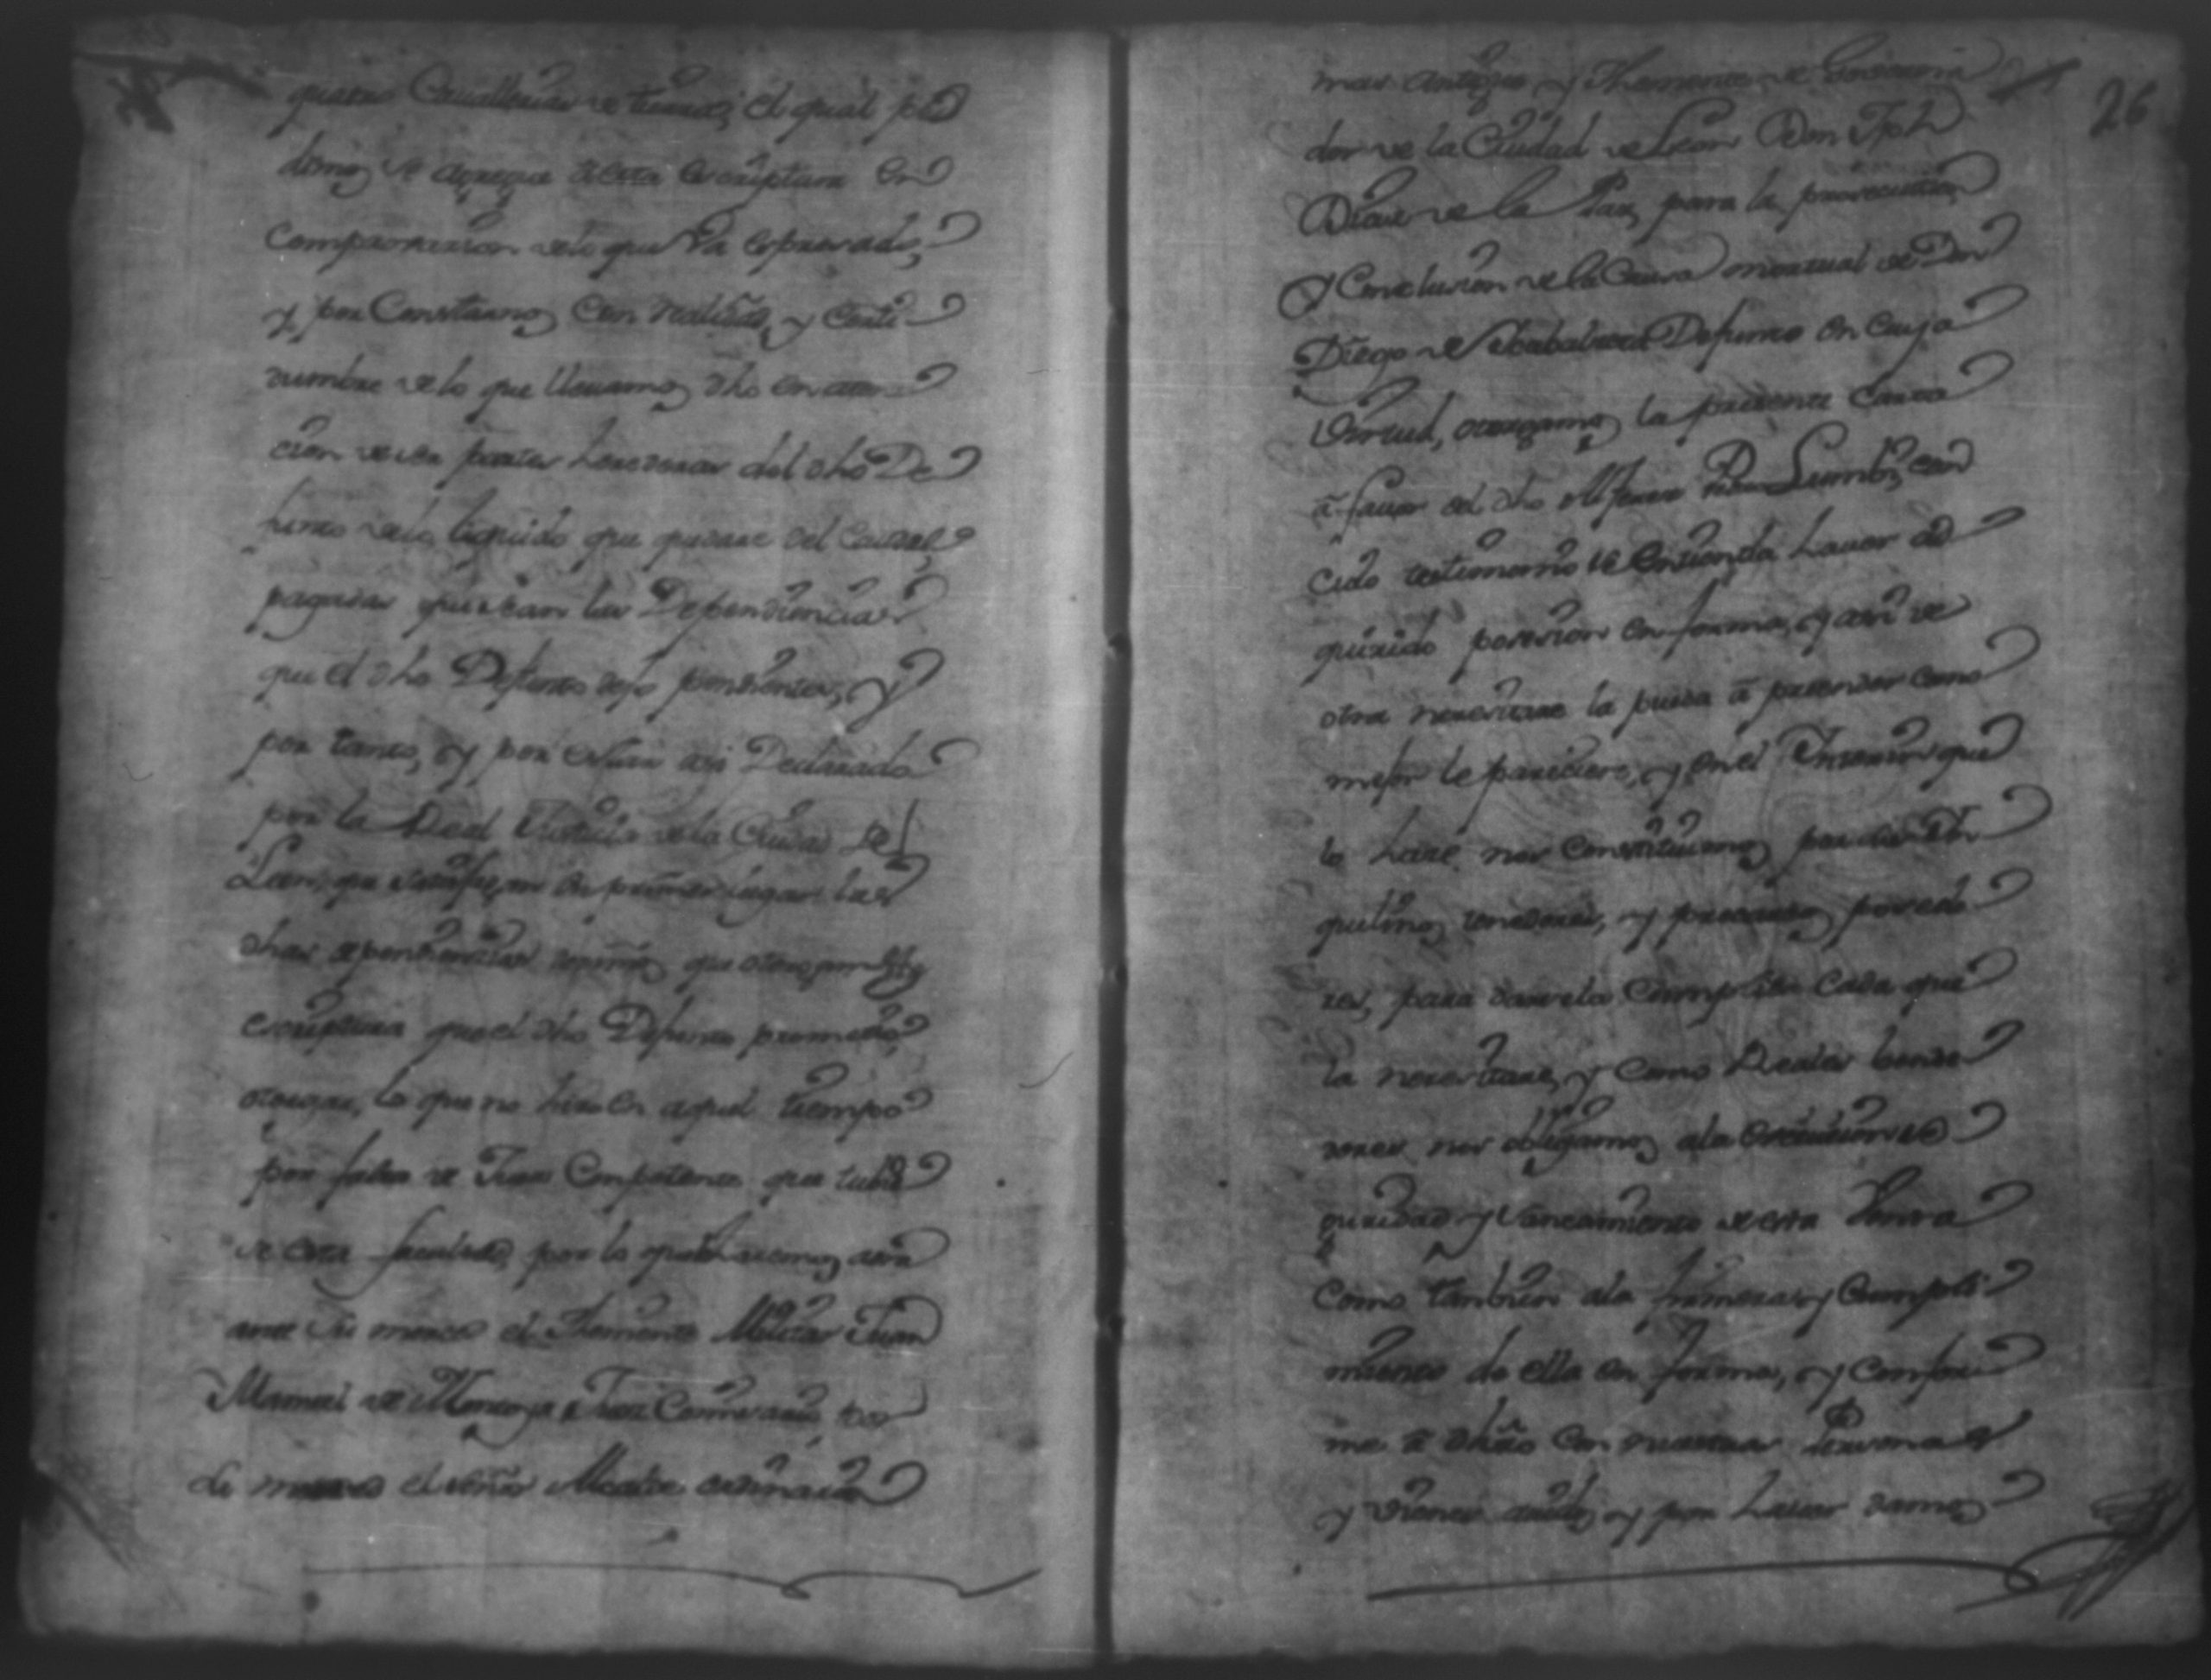 quatro Cauallerias de tierras, el qual pe
dimos se agregue a esta escriptura en
Comprouacion de lo que ba expresado,
y por Constarnos Con realidad, y Certi
dumbre de lo que lleuamos dho en aten
cion de ser partes herederas del dho De
funto de lo liquido que quedare del Caudal
pagadas que sean las Dependencias
que el dho Defunto dejo pendientes, y
por tanto, y por estar asi Declarado
por la Real Justicia de la Ciudad de
Leon, que satisfagan en primer lugar las
dhas dependencias que otorguemos
escriptura que el dho Defunto prometio
otorgar, lo que no hizo en aquel tiempo
por falta de Juez Competente que tubie
se esta facultad, por lo que lo hacemos aora
ante su merced el Theniente Militar Juan
Manuel de Juez Comisario, por
de el señor Alcalde ordinario
26
mas antiguo y Theniente de Gouerna
dor de la Ciudad de Leon Don Jph
Diaz de la Paz, para la prosecucion
y Conclusion de la Causa mortual de Don
Diego de Defunto en Cuya
Virtud, otorgamos la presente Carta
a fauor del dho Alferez con
cuio testimonio se entienda hauer ad
quirido posesion en forma, y assi se
otra necesitare la pueda aprender como
mejor le pareciere, y en el Interin que
lo hace nos Constituimos por sus In
quilinos tenedores, y precarios poseedo
res, para darsela Cumplida Cada que
la necesitare, y Como Reales bende
dores nos obligamos a la eviccion se
guridad y saneamiento de esta Venta
Como tambien a la firmeza y Cumpli
miento de ella en forma, y Confor
me a dhro Con nuestras Personas
y vienes auidos y por hauer damos